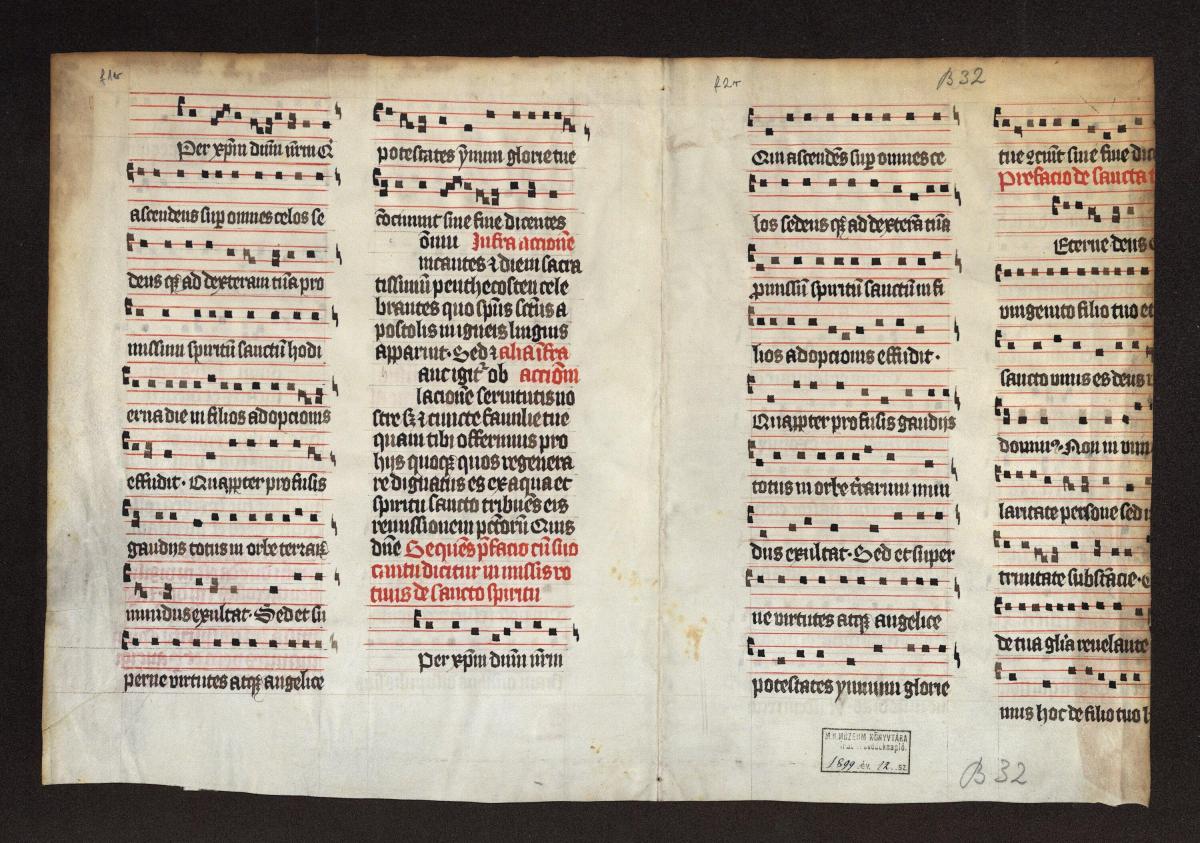 f 1v
Per xp̄m dn̄m nr̄m Q
ascendens sup omnes celos se
dens q ad dexteram tuā pro
missum spiritū sanctū hodi
erna die in filios adopcionis
effudit · Quapp̄ter profusis
gaudijs totus in orbe terraꝝ
mundus exultat · Sed et su
perne virtutes atqꝫ angelice
potestates ymnum glorie tue
c̄ocinunt sine fine dicentes
Infra accionē
nicantes ⁊ diem sacra
tissimū penthecosten cele
brantes quo spūs sct̄us a
postolis in igneis linguis
apparuit · Sed ⁊ alia īfra
anc igit᷑ ob acciōm
lacionē seruitutis no
stre sꝫ ⁊ cuncte familie tue
quam tibi offerimus pro
hijs quoqꝫ quos regenera
re dignatus es ex aqua et
spiritu sancto tribuēs eis
remissionem pct̄orū Quis
dn̄e Sequēs p̄facio cū suo
cantu dicitur in missis vo
tiuis de sancto spiritu
Per xp̄m dn̄m nr̄m
f 2r
B 32
Qui ascendēs suꝑ omnes ce
los sedens qꝫ ad dexterā tuā
ꝓmissū spiritū sanctū in fi
lios adopcionis effudit ·
Quapp̄ter profusis gaudijs
totus in orbe t̄rarum mun
dus exultat · Sed et super
ne virtutes atqꝫ angelice
potestates ymnum glorie
tue ↄcinūt sine fine dic
Prefacio de sancta t
Eterne deus
vnigenito filio tuo et
sancto vnus es deus
dominꝰ · Non in vni
laritate persone sed i
trinitate substācie ·
de tua glīa reuelante
mus hoc de filio tuo h
M. N. MÚZEUM KÖNYVTÁRA
1899 év. 12. sz.
B 32